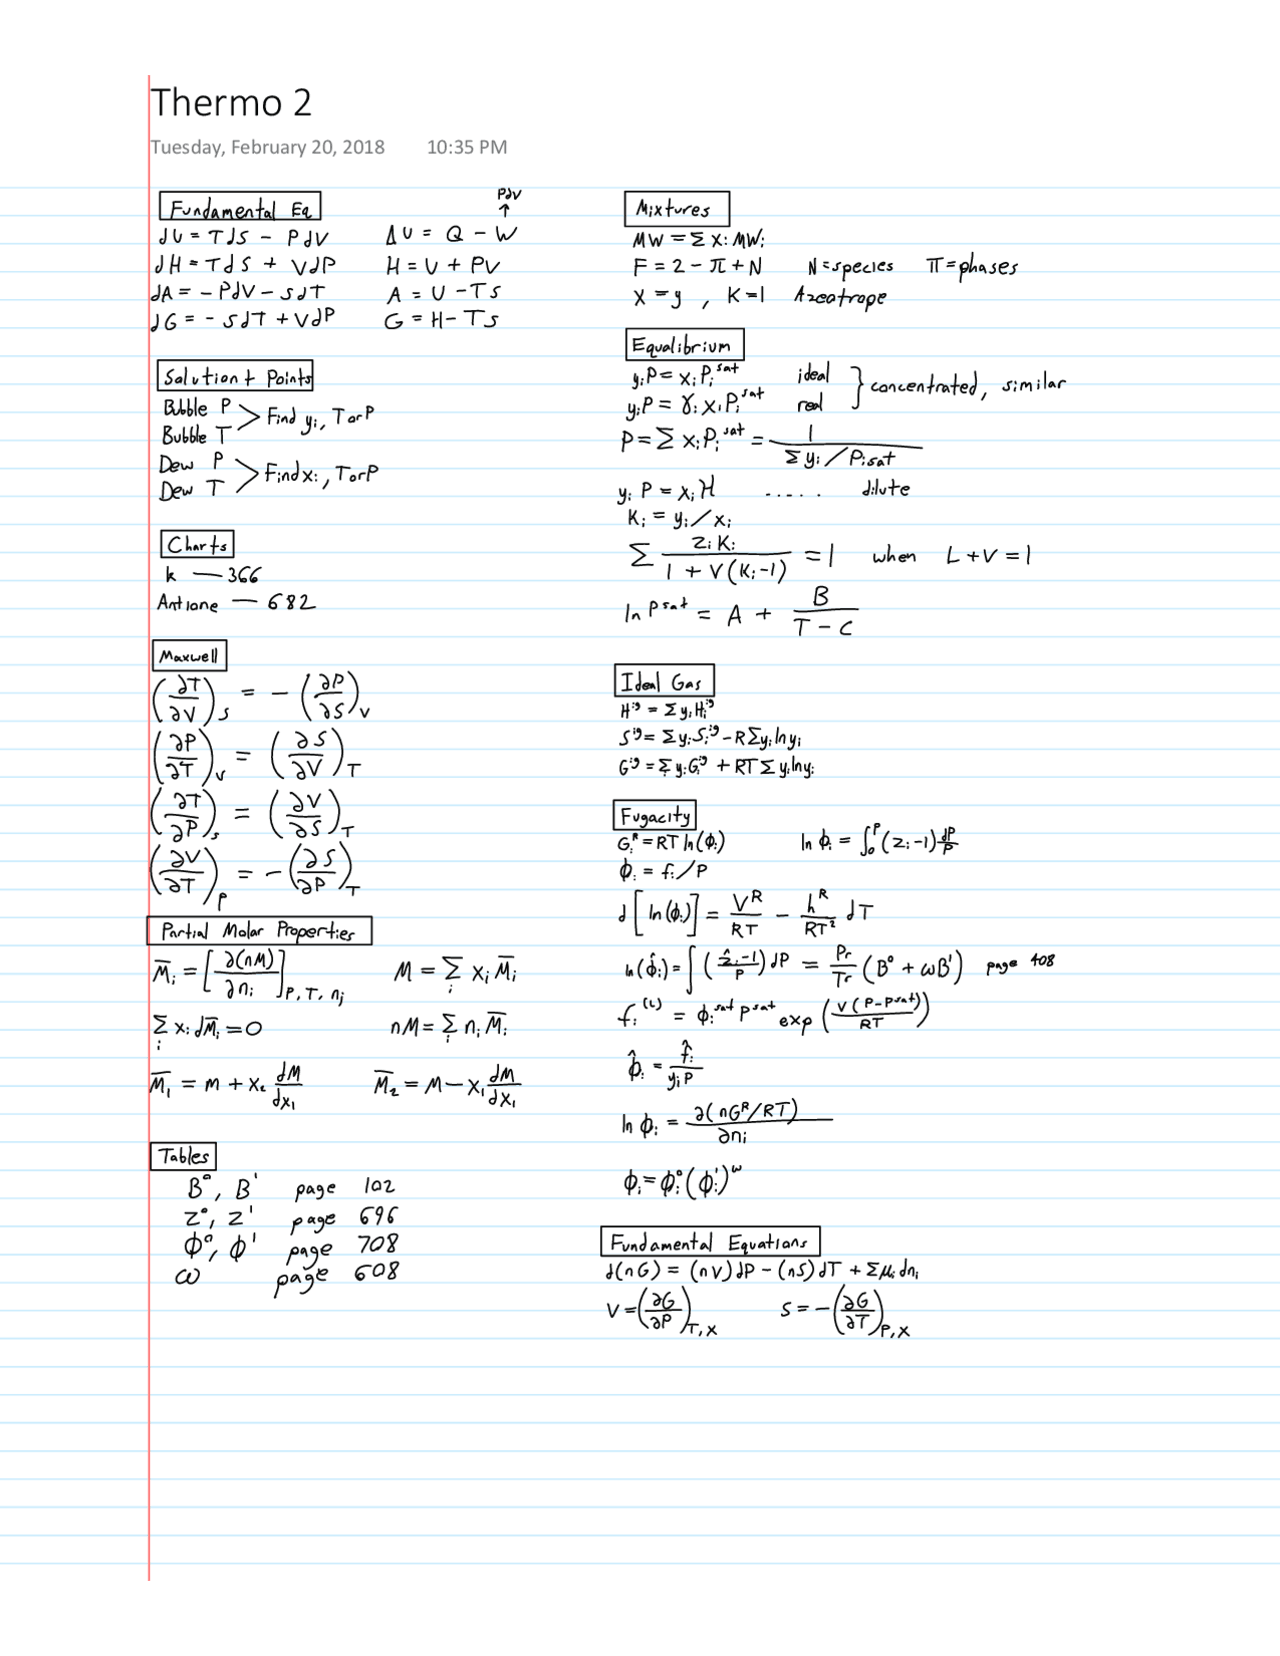 Thermo 2
Tuesday, February 20, 2018 10:35 PM
Fundamental Eq
PdV
↑
dU = TdS - PdV ΔU = Q - W
dH = TdS + VdP H = U + PV
dA = -PdV - SdT A = U - TS
dG = -SdT + VdP G = H - TS
Solution + Points
Bubble P
Bubble T > Find yi, T or P
Dew P
Dew T > Find xi, T or P
Charts
k — 366
Antione — 682
Maxwell
(∂T/∂V)s = -(∂P/∂S)v
(∂P/∂T)v = (∂S/∂V)T
(∂T/∂P)s = (∂V/∂S)T
(∂V/∂T)P = -(∂S/∂P)T
Partial Molar Properties
M̅i = [∂(nM)/∂ni]P,T,nj M = Σi xi M̅i
Σi xi dM̅i = 0 nM = Σi ni M̅i
M̅1 = M + x2 dM/dx1 M̅2 = M - x1 dM/dx1
Tables
B°, B' page 102
Z°, Z' page 696
ϕ°, ϕ' page 708
ω page 608
Mixtures
MW = Σ xi MWi
F = 2 - π + N N = species π = phases
X = y , K = 1 Azeotrope
Equalibrium
yiP = xiPi^sat ideal
yiP = γi xi Pi^sat real } concentrated, similar
P = Σ xiPi^sat = 1 / (Σ yi / Pi sat)
yi P = xi H ..... dilute
Ki = yi / xi
Σ ziKi / (1 + V(Ki - 1)) = 1 when L + V = 1
ln P^sat = A + B / (T - C)
Ideal Gas
H^ig = Σ yi Hi^ig
S^ig = Σ yi Si^ig - R Σ yi ln yi
G^ig = Σ yi Gi^ig + RT Σ yi ln yi
Fugacity
Gi^R = RT ln(ϕi) ln ϕi = ∫0^P (Zi - 1) dP/P
ϕi = fi / P
d[ln(ϕi)] = V^R/RT - h^R/RT² dT
ln(ϕ̂i) = ∫((ẑi - 1)/P) dP = Pr/Tr (B° + ωB') page 408
fi^(L) = ϕi^sat P^sat exp(V(P - P^sat)/RT)
ϕ̂i = f̂i / yiP
ln ϕi = ∂(nG^R/RT) / ∂ni
ϕi = ϕi°(ϕi')^ω
Fundamental Equations
d(nG) = (nV)dP - (nS)dT + Σμi dni
V = (∂G/∂P)T,X S = -(∂G/∂T)P,X